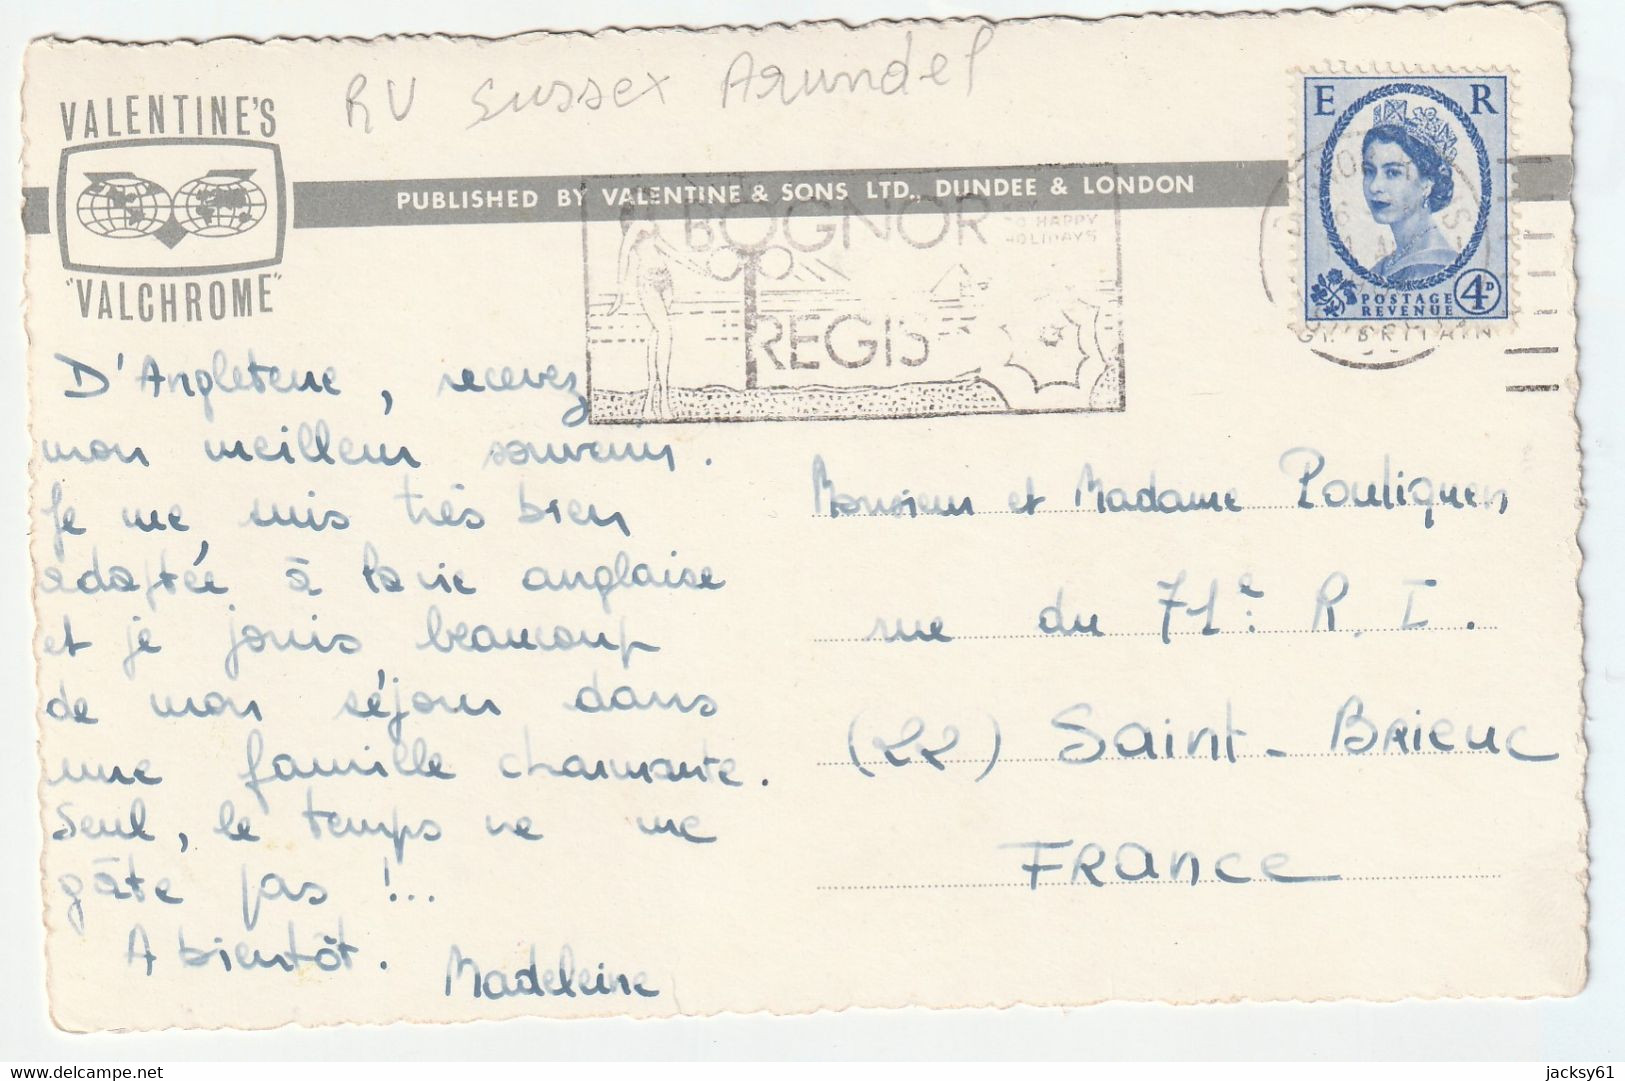 RV Sussex Arundel
VALENTINE'S
"VALCHROME"
PUBLISHED BY VALENTINE & SONS LTD., DUNDEE & LONDON
BOGNOR
REGIS
HAPPY
HOLIDAYS
E R
POSTAGE
REVENUE
4D
GT. BRITAIN
D'Angleterre, recevez
mon meilleur souvenir.
Je me suis très bien
adaptée à la vie anglaise
et je jouis beaucoup
de mon séjour dans
une famille charmante.
Seul, le temps ne me
gâte pas !...
A bientôt.
Madeleine
Monsieur et Madame Pouliquen
rue du 71e R. I.
(22) Saint-Brieuc
France
jacksy61